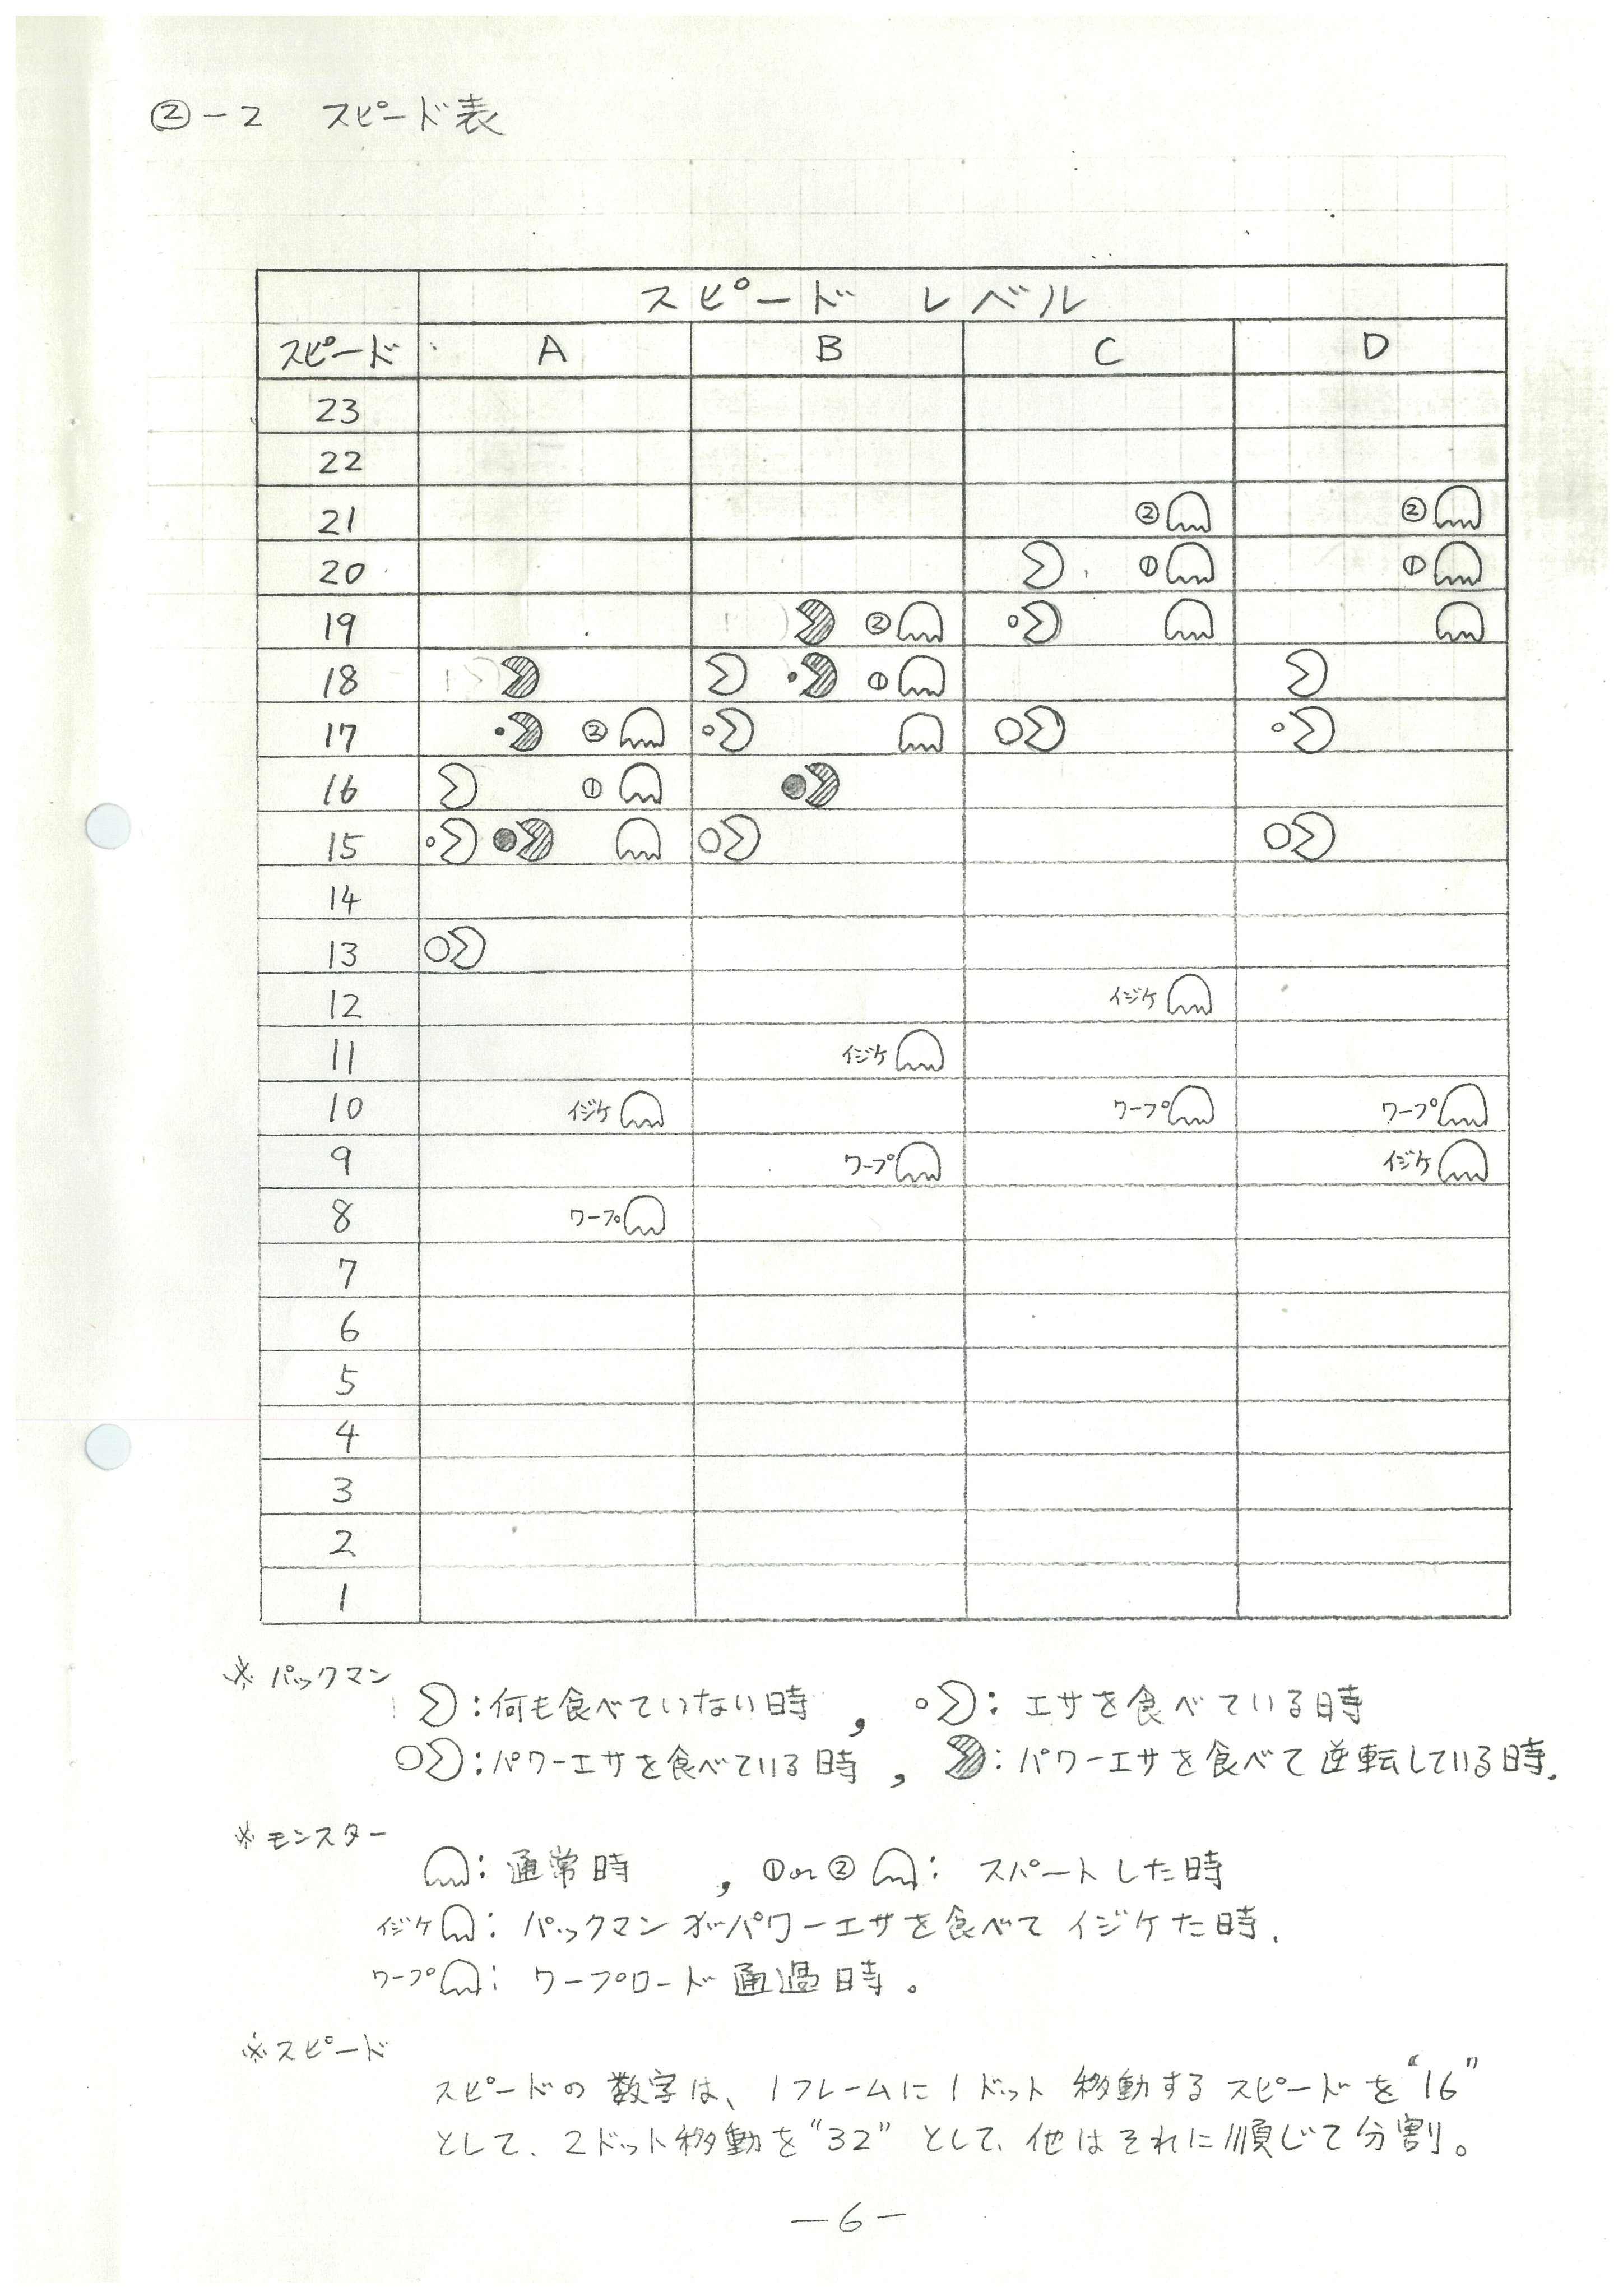 ②-2 スピード表
スピード レベル
スピード A B C D
23
22
21 ② ②
20 ① ①
19 ②
18 ①
17 ②
16 ①
15
14
13
12 イジケ
11 イジケ
10 イジケ ワープ ワープ
9 ワープ イジケ
8 ワープ
7
6
5
4
3
2
1
※パックマン
:何も食べていない時, :エサを食べている時
:パワーエサを食べている時, :パワーエサを食べて逆転している時.
※モンスター
:通常時 , ①or② : スパートした時
イジケ : パックマンがパワーエサを食べてイジケた時.
ワープ : ワープロード通過時。
※スピード
スピードの数字は、1フレームに1ドット移動するスピードを"16"
として、2ドット移動を"32"として、他はそれに順じて分割。
-6-